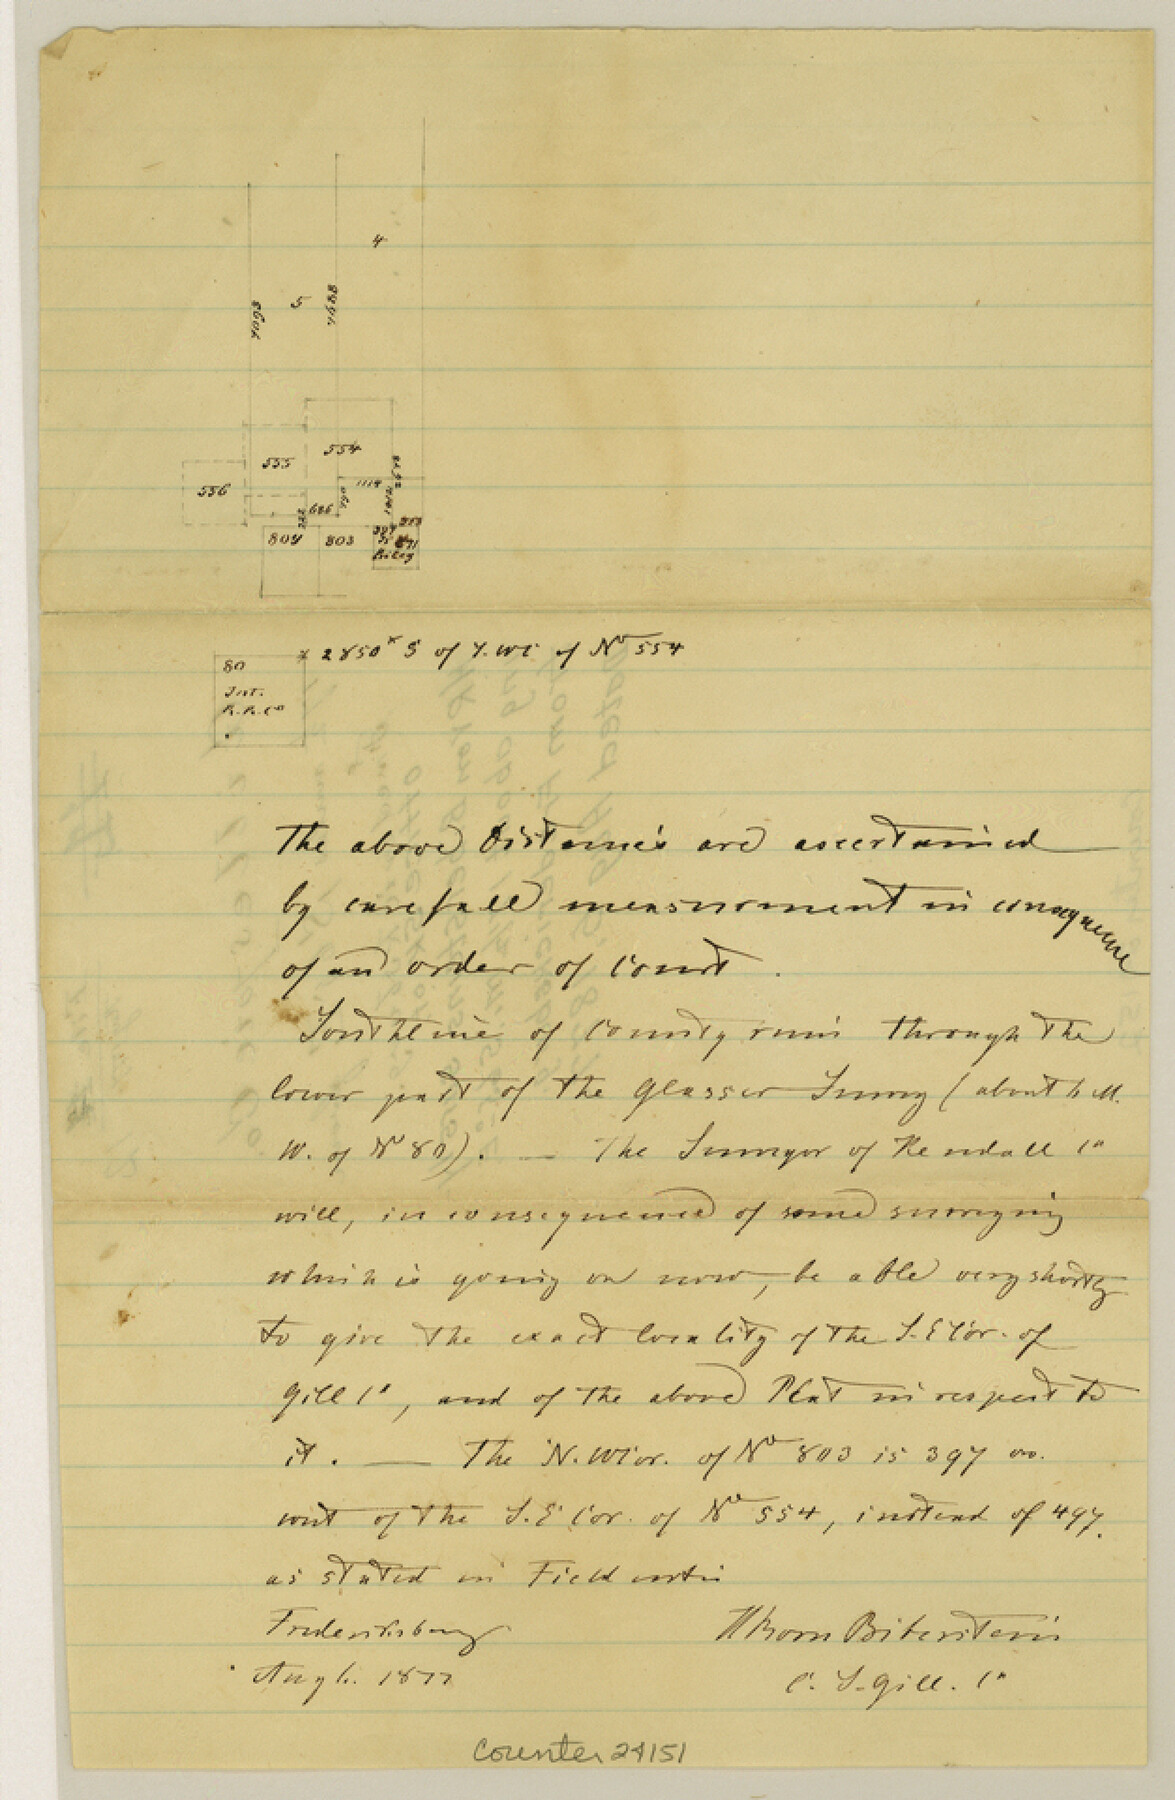 4
5
8607
8484
554
555
556
1114
790
686
222
804
803
397
871
80
Int.
R.R.Co
x 2850x S of S.W.C. of No 554
The above Distances are ascertained
by carefull measurment in consequence
of an order of Court.
Southline of County runs through the
lower part of the Glasser Survey (about 6 M.
W. of No 80). — The Surveyor of Kendall Co
will, in consequence of some surveying
which is going on now, be able very shortly
to give the exact locality of the S.E Cor. of
Gill Co, and of the above Plat in respect to
it. — The N.W Cor. of No 803 is 397 vrs.
west of the S.E Cor. of No 554, instead of 497.
as stated in Field notes
Fredericksburg
Aug 6. 1877
H Born Biberstein
C. S. Gill. Co
Counter 24151